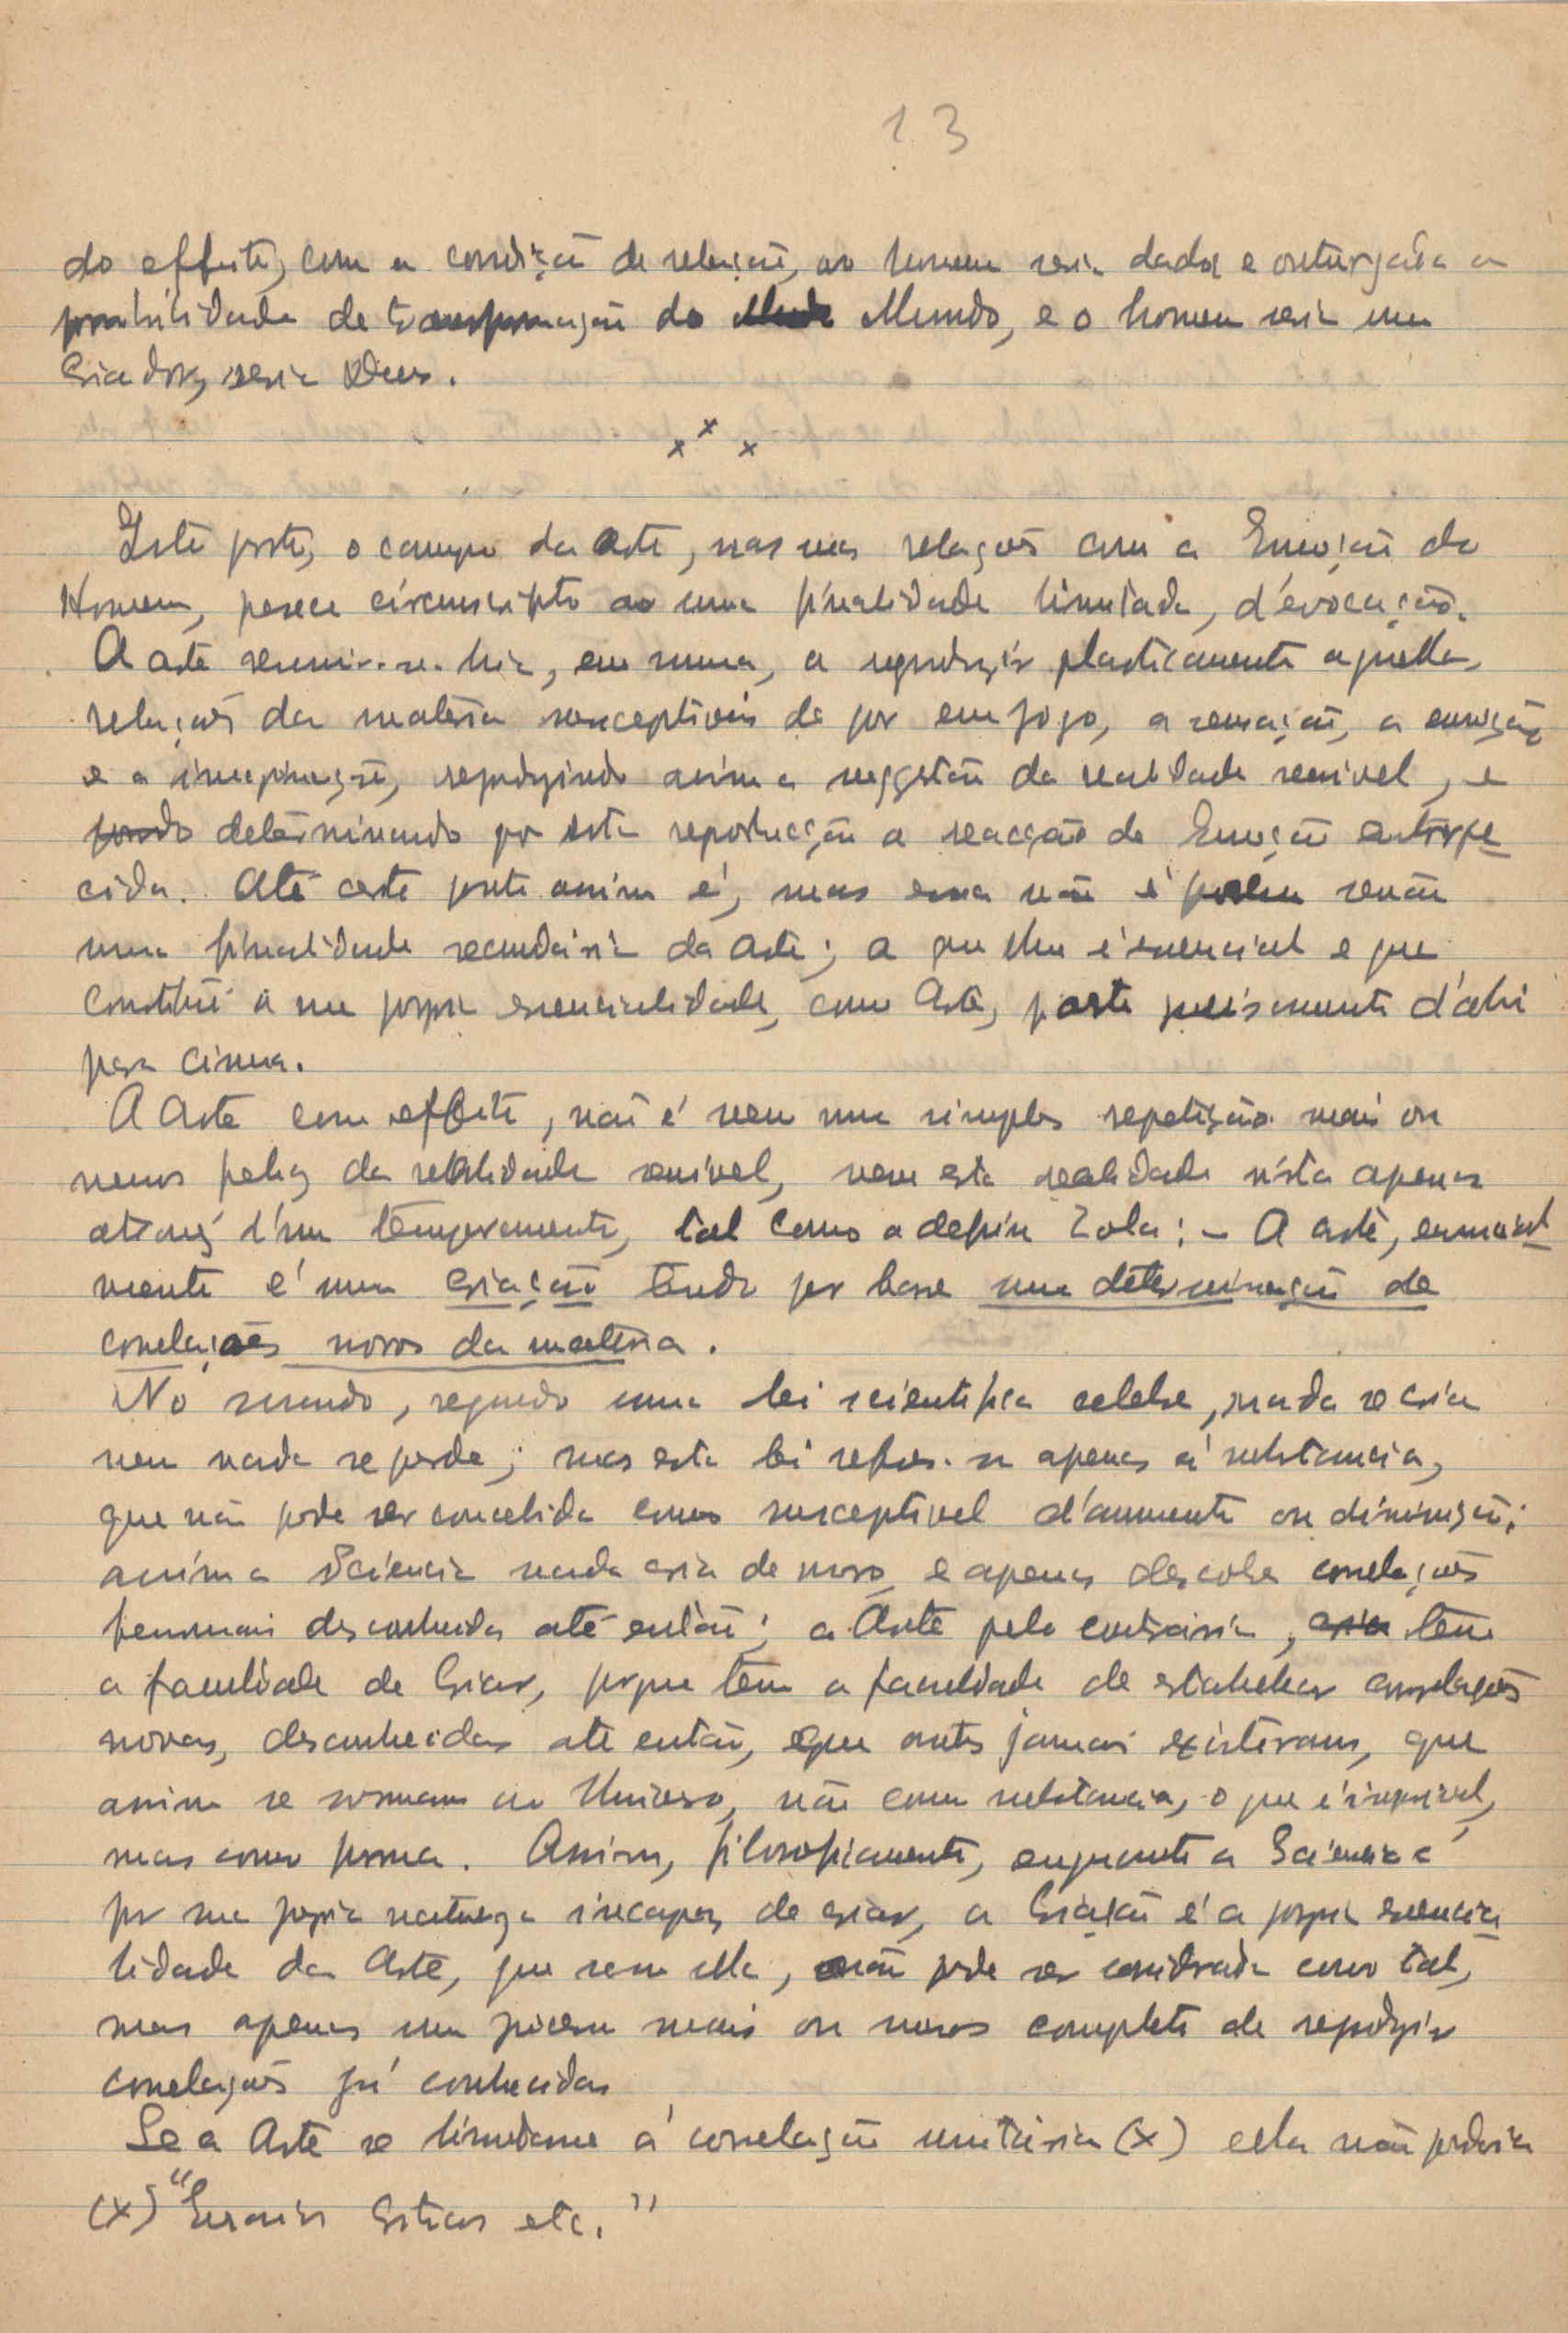 13
do effeito, com a condição de relação, ao homem seria dada e outurgada a
probabilidade de transformação do Mundo, e o homem seria um
Criador, seria Deus.
x x x
Isto posto, o campo da Arte, nas suas relações com a Emoção do
Homem, parece circumscripto ao uma finalidade limitada, d'evocação.
A arte resumir-se-hia, em summa, a reproduzir plasticamente aquellas
relações da materia susceptiveis de pôr em jogo, a sensação, a emoção
e a imaginação, reproduzindo assim a suggestão da realidade sensivel, e
determinando por esta reproducção a reacção da Emoção entorpe
cida. Até certo ponto assim é, mas essa não é porem senão
uma finalidade secundária da arte; a que lhe é essencial e que
constitui a sua propria essencialidade, como Arte, parte precisamente d'ahi
para cima.
A Arte com effeito, não é nem uma simples repetição mais ou
menos feliz da realidade sensivel, nem esta realidade vista apenas
atravez d'um temperamento, tal como a define Zola: - A arte, essencial
mente é uma criação tendo por base uma determinação de
correlações novas da materia.
No mundo, segundo uma lei scientifica celebre, nada se cria
nem nada se perde; mas esta lei refere-se apenas á substancia,
que não pode ser concebida como susceptivel d'aumento ou diminuição;
assim a Sciencia nada cria de novo e apenas descobre correlações
fenomenais desconhecidas até então; a Arte pelo contrario, cria tem
a faculdade de Criar, porque tem a faculdade de estabelecer correlações
novas, desconhecidas até então, que antes jamais existiram, que
assim se sommam ao Universo, não como substancia, o que é impossivel,
mas como forma. Assim, filosoficamente, enquanto a Sciencia é
por sua propria natureza incapaz de criar, a Criação é a propria essencia
lidade da Arte, que sem ella, não pode ser considerada como tal,
mas apenas um processo mais ou menos completo de reproduzir
correlações já conhecidas
Se a Arte se limitasse á correlação unitária (x) ella não poderia
(x) "Ensaios Criticos etc."